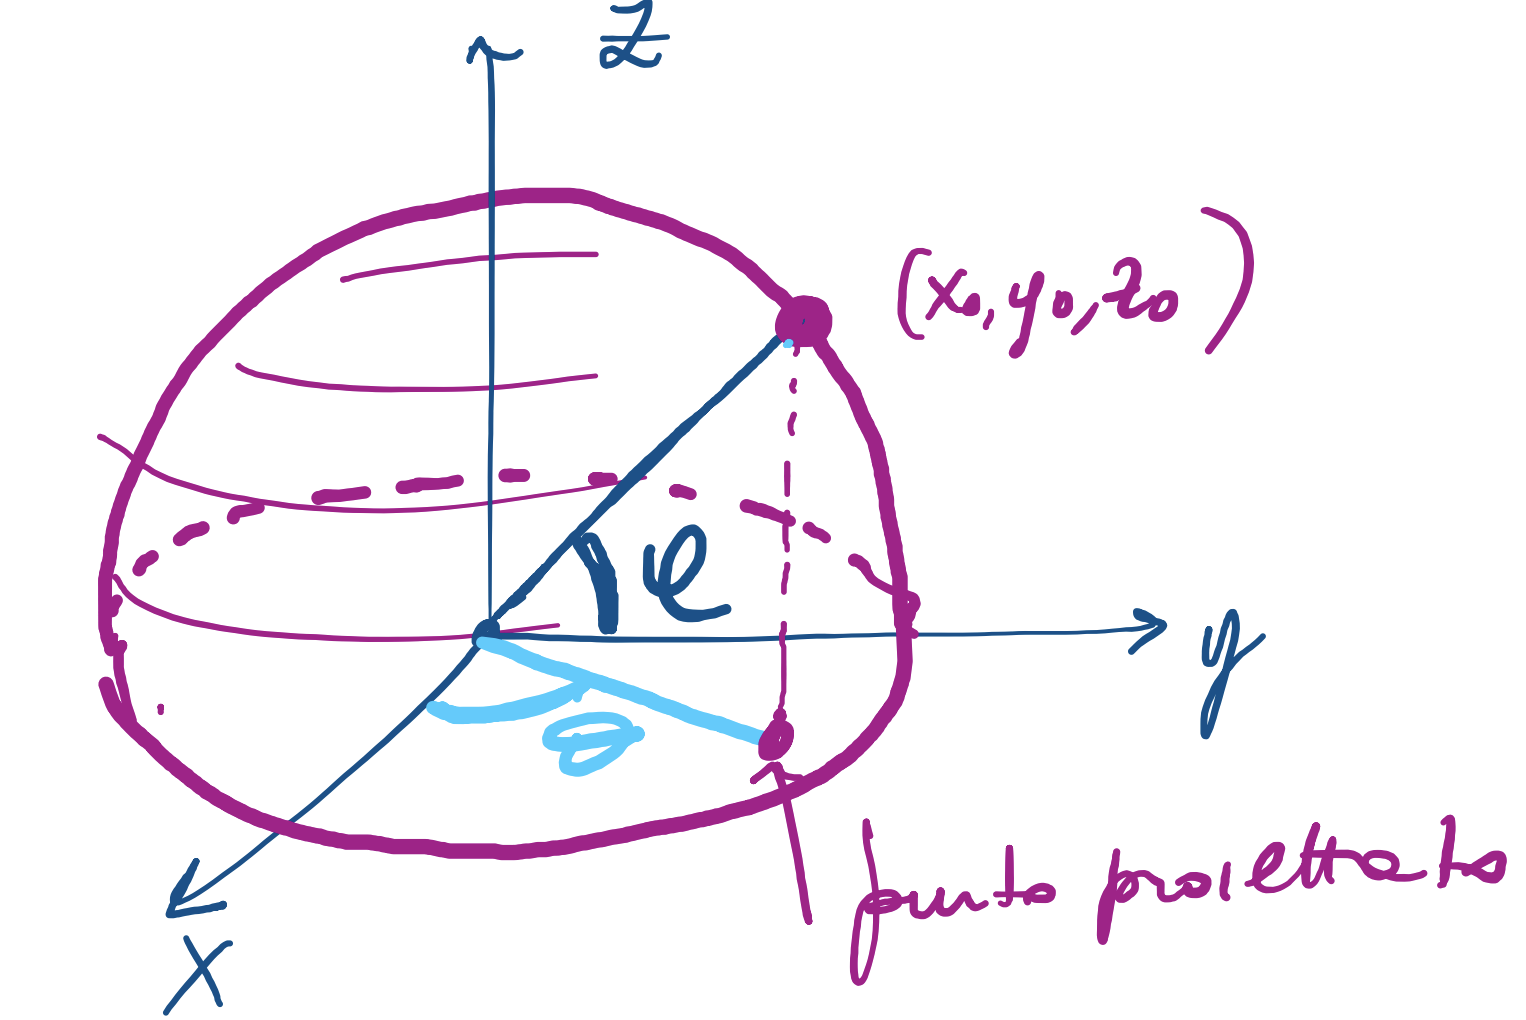 Z
(x₀, y₀, z₀)
φ
y
θ
punto proiettato
x